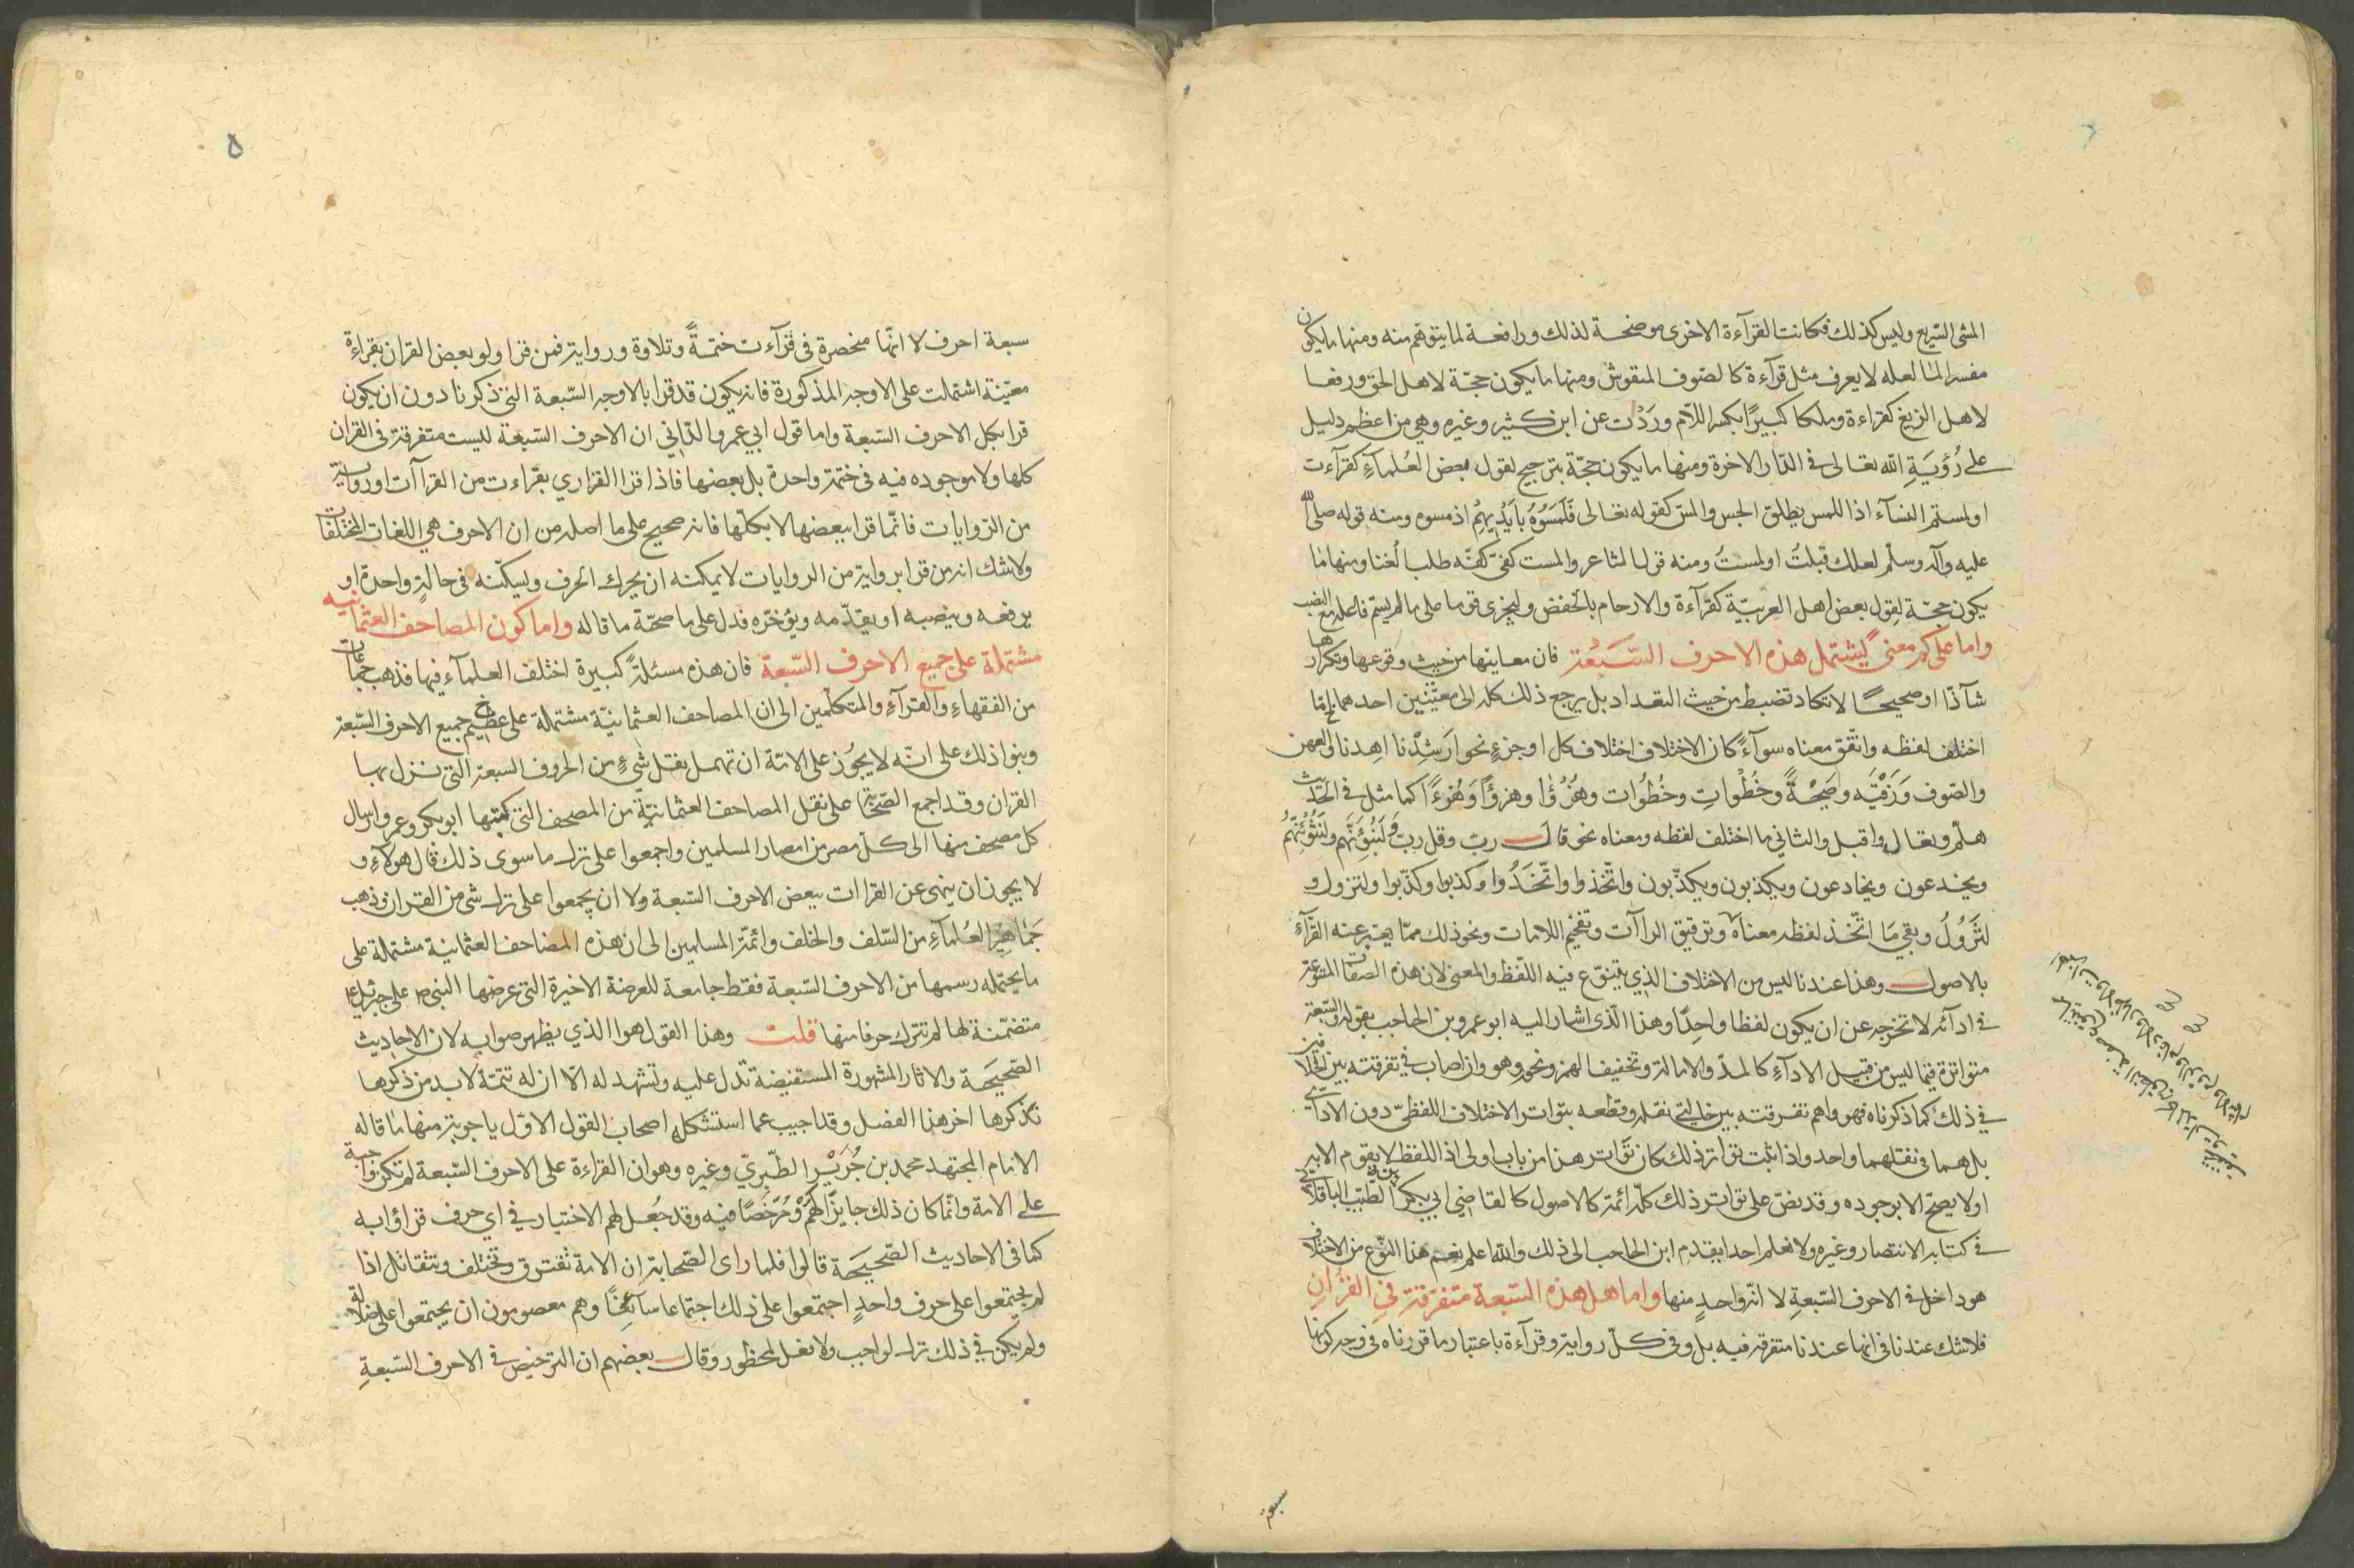 المشى السّريع وليس كذلك فكانت القرآءة الاخرى موضحة لذلك ورافعة لما يتوهم منه ومنها ما يكون
مفسرا لما لعله لا يعرف مثل قرآءة كالصّوف المنقوش ومنها ما يكون حجّة لاهل الحق ورفعا
لاهل الزيغ كقراءة وملكا كبيرًا بكسر اللّام ورَدْت عن ابن كثير وغيره وهي من اعظم دليل
على رُؤيَةِ الله تعالى في الدّار الاخرة ومنها ما يكون حجّة بترجيح لقول بعض العُلمآءِ كقرآءت
اولمستم النسآء اذ اللمس يطلق الجس والمسّ كقوله تعالى فَلَمَسَوُهُ باَيْدِيهِمْ اذ مسوه ومنه قوله صلى الله
عليه وآله وسلّم لعلك قبلتُ اولمستُ ومنه قول الشاعر والمست كفىّ كفّه طلب الُغنا ومنها ما
يكون حجّة لقول بعض اهل العربيّة كقرآءة والارحام بالخفض وليجزى قوما على ما لم يسمّ فاعله مع النصب
واما على كم معنى يشتمل هذه الاحرف السَّبْعة فان معاينها من حيث وقوعها وتكرارها
شآذّا او صحيحًا لا تكاد تضبط من حيث التعداد بل يرجع ذلك كله الى معنَّيين احدهما ما
اختلف لفظه واتّفق معناه سوآءً كان الاختلاف اختلاف كل او جزءٍ نحو ارَشِدْنا اهِدنا والعهن
والصّوف وَزَقيَه وصَيْحةً وخُطْواتٍ وخُطُوات وهُزُؤًا وهزؤًا وَهُزءًا كما مثل في الحَدّيث
هلّم وتعال واقبل والثاني ما اختلف لفظه ومعناه نحو قالَ ربّ وقل ربّ ولَنُبَوِّئَنَّهم ولَنثوُيَنّهُم
ويخدعون ويخادعون ويكذبون ويكذّبون واتّخذوا واتّخَذُوا وكذبوا وكذّبوا ولتزول و
لتَزُولُ وبقي مَا اتّخذ لفظه معناه وترقيق الراآت وتفخيم اللامات ونحو ذلك ممّا يعبّر عنه القرّآءِ
بالاصول وهذا عندنا ليس من الاختلاف الذي يتنوّع فيه اللّفظ والمعنى لان هذه الصّفات المتنوّعة
في ادآئه لا تخرجه عن ان يكون لفظا واحِدًا وهذا الّذى اشار اليه ابو عمرو بن الحاجب بقوله والسّبعة
متواترة فيما ليس من قبيل الادآءِ كالمدّ والامالة وتخفيف الهمز ونحوه وهو وان اصاب في تفرقته بين الخلافين
في ذلك كما ذكرناه فهو واهم تفرقته بين حالتي نقله وقطعه بتواتر الاختلاف اللفظىّ دون الادآئي
بل هما في نقلهما واحد واذا ثبت تواتر ذلك كان توَاتر هذا من باب اولى اذ اللفظ لا يقوم الا به
اولا يصحّ الا بوجوده وقد نصّ على تواتر ذلك كلّه ائمّة كالاصول كالقاضي ابي بكر الطّيّب الباقلاني
في كتابه الانتصار وغيره ولا نعلم احدا يقدم ابن الحاجب الى ذلك والله اعلم نعم هذا النّوع من الاختلاف
هو داخل في الاحرف السّبعةِ لا انّه واحدٍ منها واما هل هذه السّبعة متفرّقة في القُرْانِ
فلا شك عندنا في انها عندنا متفرقة فيه بل وفي كلّ رواية وقرآءة باعتبار ما قررناه في وجه كونها
سبعة
٥
سبعة احرف لا انّها منحصرة في قرآءت ختمةً وتلاوة ورواية فمن قرا ولو بعض القران بقراءةٍ
معيّنة اشتملت على الاوجه المذكورة فانه يكون قد قرا بالاوجه السّبعة التي ذكرنا دون ان يكون
قرا بكل الاحرف السّبعة واما قول ابي عمرو الدّاني ان الاحرف السّبعة ليست متفرقة في القران
كلها ولا موجوده فيه في ختمة واحدة بل بعضها فاذا قرا القراري بقرّاءت من القراآت او رواية
من الرّوايات فانّما قرا ببعضها لا بكلّها فانه صحيح على ما اصله من ان الاحرف هي اللغات المختلفات
ولا شك انه من قرا برواية من الروايات لا يمكنه ان يحرك الحرف ويسكّنه في حالةٍ واحدة او
يرفعه وينصبه او يقدّمه ويؤخرّه فدل على ما صحّة ما قاله واما كون المصاحف العثمانيه
مشتملة على جميع الاحرف السّبعة فان هذه مسئلةً كبيرة اختلف العلمآء فيها فذهب جماعات
من الفقهاءِ والقرآءِ والمتكلّمين الى ان المصاحف العثمانيّة مشتملة على عظيم جميع الاحرف السّبعة
وبنوا ذلك على انّه لا يجُوز على الامّة ان تهمل نقل شيءٍ من الحروف السبعة الّتي نزل بها
القران وقد اجمع الصّحابة على نقل المصاحف العثمانيّة من المصحف التي كتبتها ابو بكر وعمر وارسال
كل مصحف منها الى كلّ مصر من امصار المسلمين واجمعوا على ترك ما سوى ذلك قال هولآءِ و
لا يجوز ان ينهى عن القراات ببعض الاحرف السّبعة ولا ان يجمعوا على ترك شي من القران وذهب
جَماهير العُلمآءِ من السّلف والخلف وائمّة المسلمين الى ان هذه المصاحف العثمانية مشتملة على
ما يحتمله رسمها من الاحرف السّبعة فقط جامعة للعرضة الاخيرة التي عرضها النبي ص على جبرئيل ع
متضمّنة لها لم تترك حرفا منها قلت وهذا القول هوا الذي يظهر صوابه لان الاحاديث
الصّحيَحة والاثار المشهورة المستفيضة تدل عليه وتشهد له الّا ان له تتمّة لا بد من ذكرها
نذكرها اخر هذا الفصل وقد اجيب عما استشكله اصحاب القول الاوّل باجوبة منها ما قاله
الامام المجتهد محمد بن جُرَيْر الطّبريّ وغيره وهو ان القراءة على الاحرف السّبعة لم تكن واجبة
على الامة وانّما كان ذلك جايزًا لهُمْ ومُرّخصًا فيه وقد جعُل لهم الاختيار في اي حرف قراؤا به
كما في الاحاديث الصّحيَحة قالوا فلما راى الصّحابة ان الامة تفترق وتختلف وتتقاتل اذا
لم يجتمعوا على حرف واحدٍ اجتمعوا على ذلك اجتماعا سآئغًا وهم معصومون ان يجتمعوا على ضلالة
ولم يكن في ذلك ترك لواجب ولا فعل لمحظور وقال بعضهم ان الترخيص في الاحرف السّبعةِ